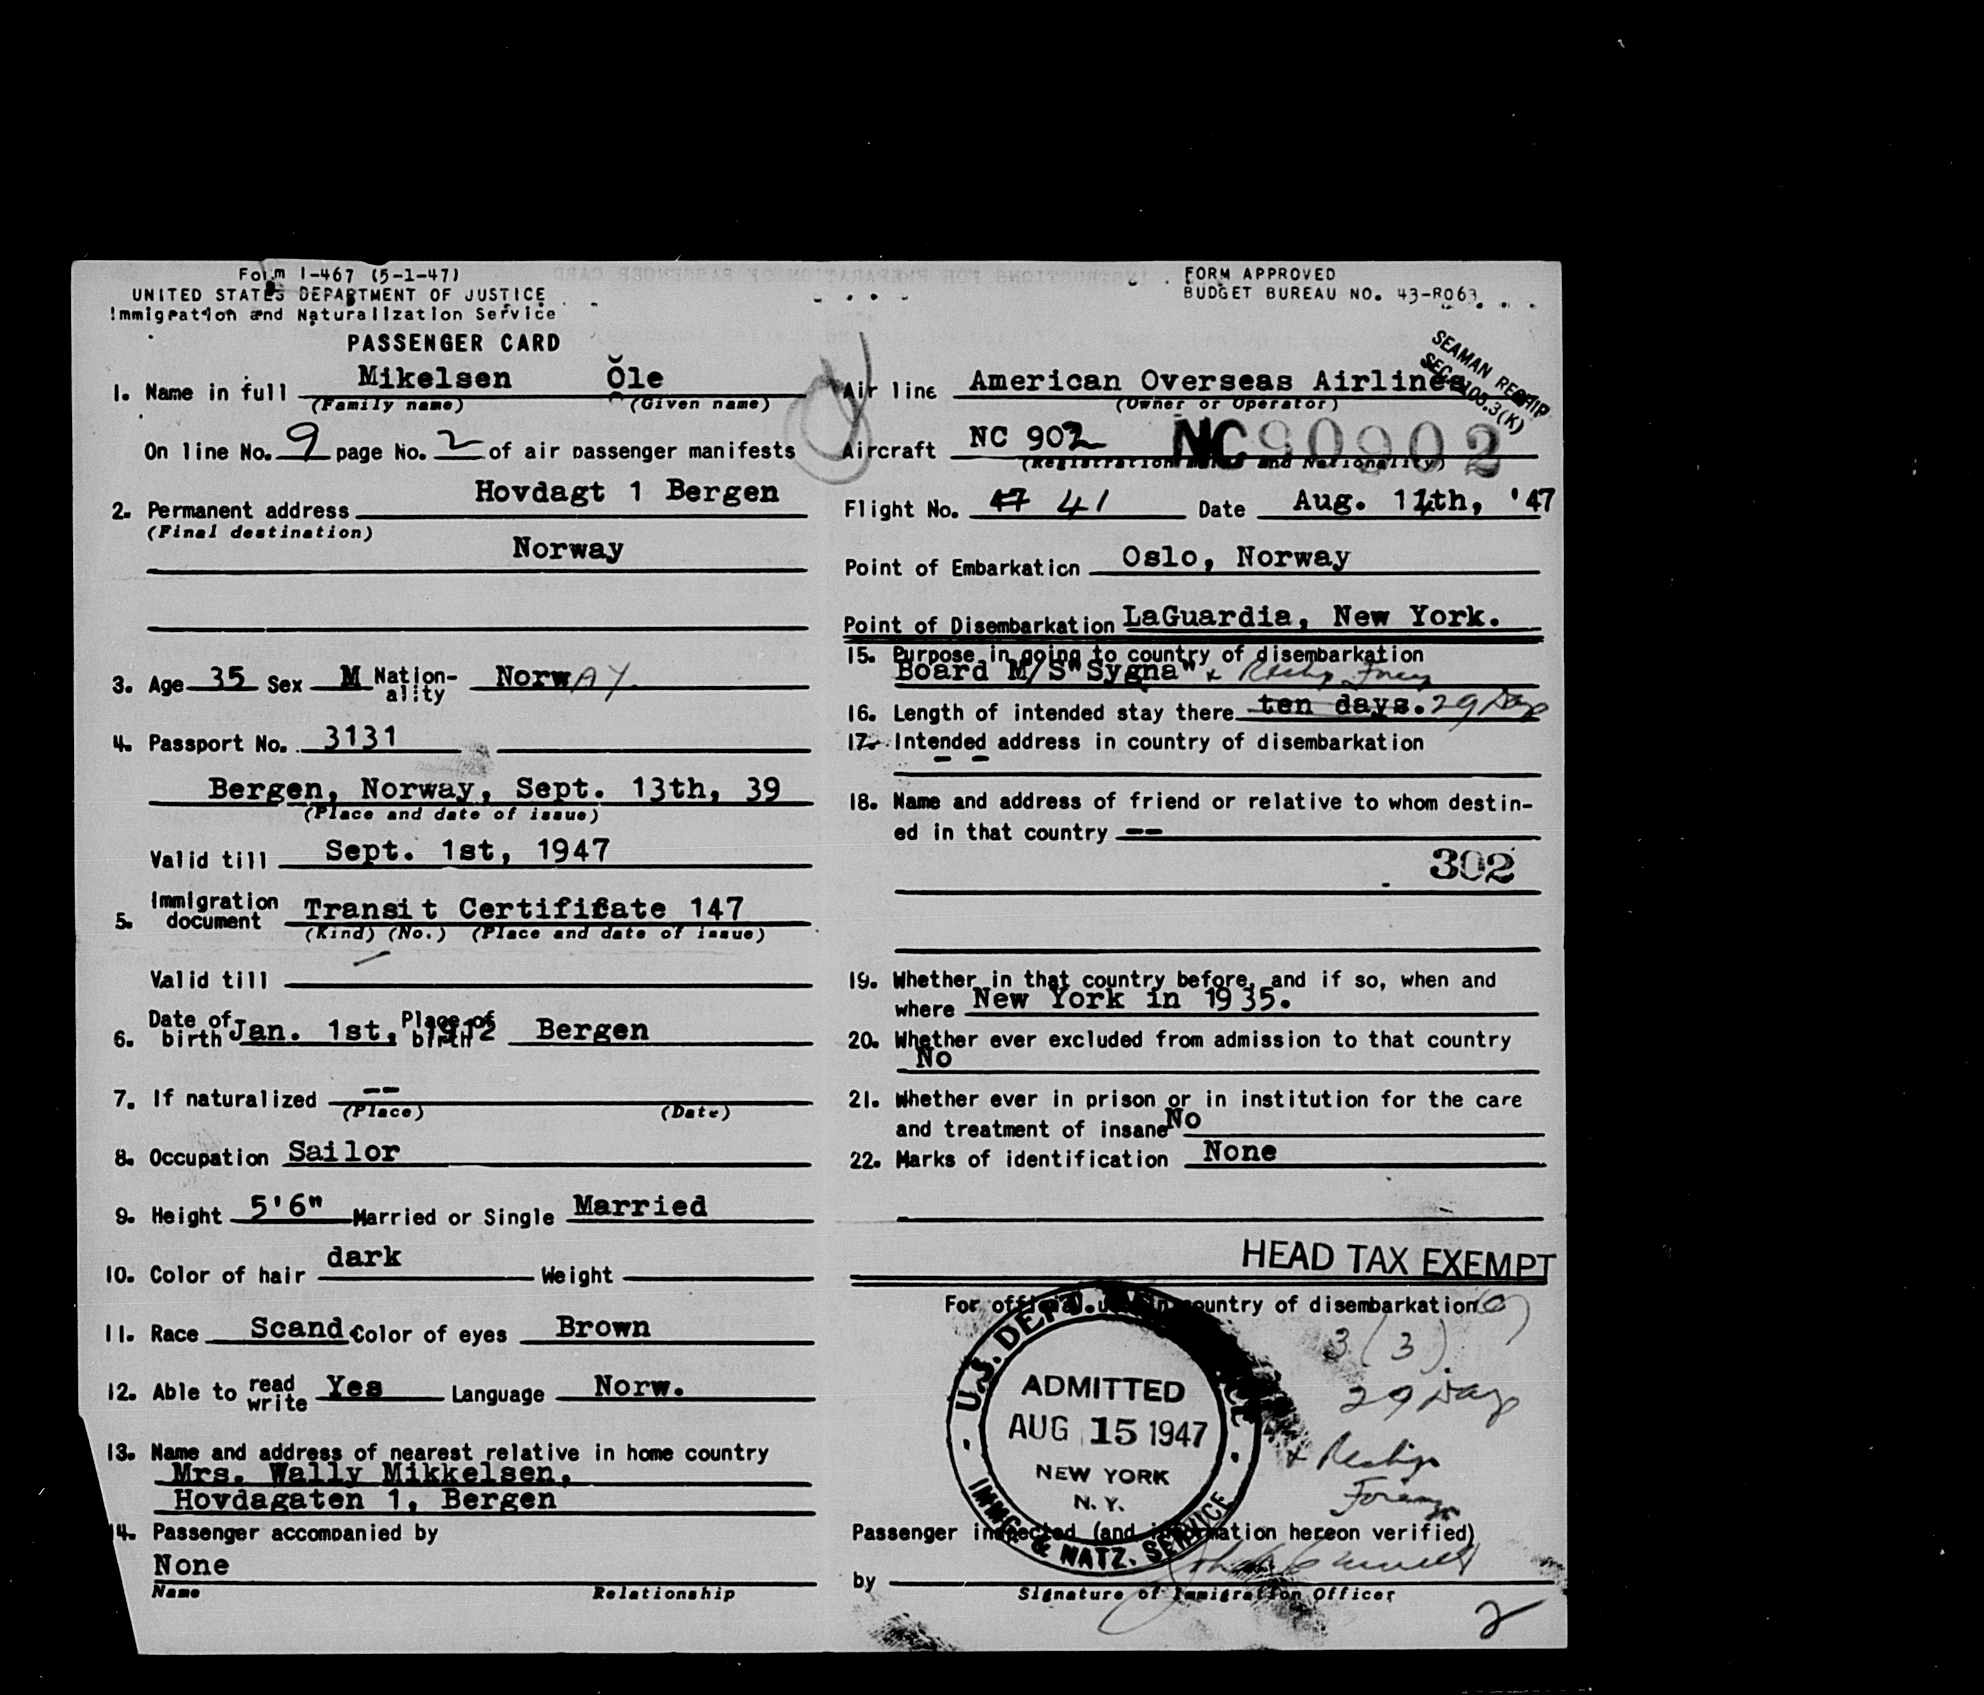 Form I-467 (5-1-47)
UNITED STATES DEPARTMENT OF JUSTICE
Immigration and Naturalization Service
PASSENGER CARD
FORM APPROVED
BUDGET BUREAU NO. 43-R063.
SEAMAN RESHIP
SEC. 105.3(K)
1. Name in full Mikelsen Ole
(Family name) (Given name)
On line No. 9 page No. 2 of air passenger manifests
2. Permanent address Hovdagt 1 Bergen
(Final destination)
Norway
3. Age 35 Sex M Nation-ality NorwAY
4. Passport No. 3131
Bergen, Norway, Sept. 13th, 39
(Place and date of issue)
Valid till Sept. 1st, 1947
5. Immigration document Transit Certificate 147
(Kind) (No.) (Place and date of issue)
Valid till
6. Date of birth Jan. 1st, 1912 Place of birth Bergen
7. If naturalized --
(Place) (Date)
8. Occupation Sailor
9. Height 5'6" Married or Single Married
10. Color of hair dark Weight
11. Race Scand Color of eyes Brown
12. Able to read write Yes Language Norw.
13. Name and address of nearest relative in home country
Mrs. Wally Mikkelsen,
Hovdagaten 1, Bergen
14. Passenger accompanied by
None
Name Relationship
Air line American Overseas Airlines
(Owner or Operator)
Aircraft NC 902 NC 90902
(Registration marks and Nationality)
Flight No. 47 41 Date Aug. 14th, '47
Point of Embarkation Oslo, Norway
Point of Disembarkation LaGuardia, New York.
15. Purpose in going to country of disembarkation
Board M/S "Sygna"
16. Length of intended stay there ten days. 29 Days
17. Intended address in country of disembarkation
- -
18. Name and address of friend or relative to whom destin-
ed in that country --
302
19. Whether in that country before, and if so, when and
where New York in 1935.
20. Whether ever excluded from admission to that country
No
21. Whether ever in prison or in institution for the care
and treatment of insane No
22. Marks of identification None
HEAD TAX EXEMPT
For official use in country of disembarkation
3 (3)
29 Days
U.S. DEPT. OF JUSTICE
ADMITTED
AUG 15 1947
NEW YORK
N. Y.
IMMG. & NATZ. SERVICE
Passenger inspected (and information hereon verified)
by
Signature of Immigration Officer
2